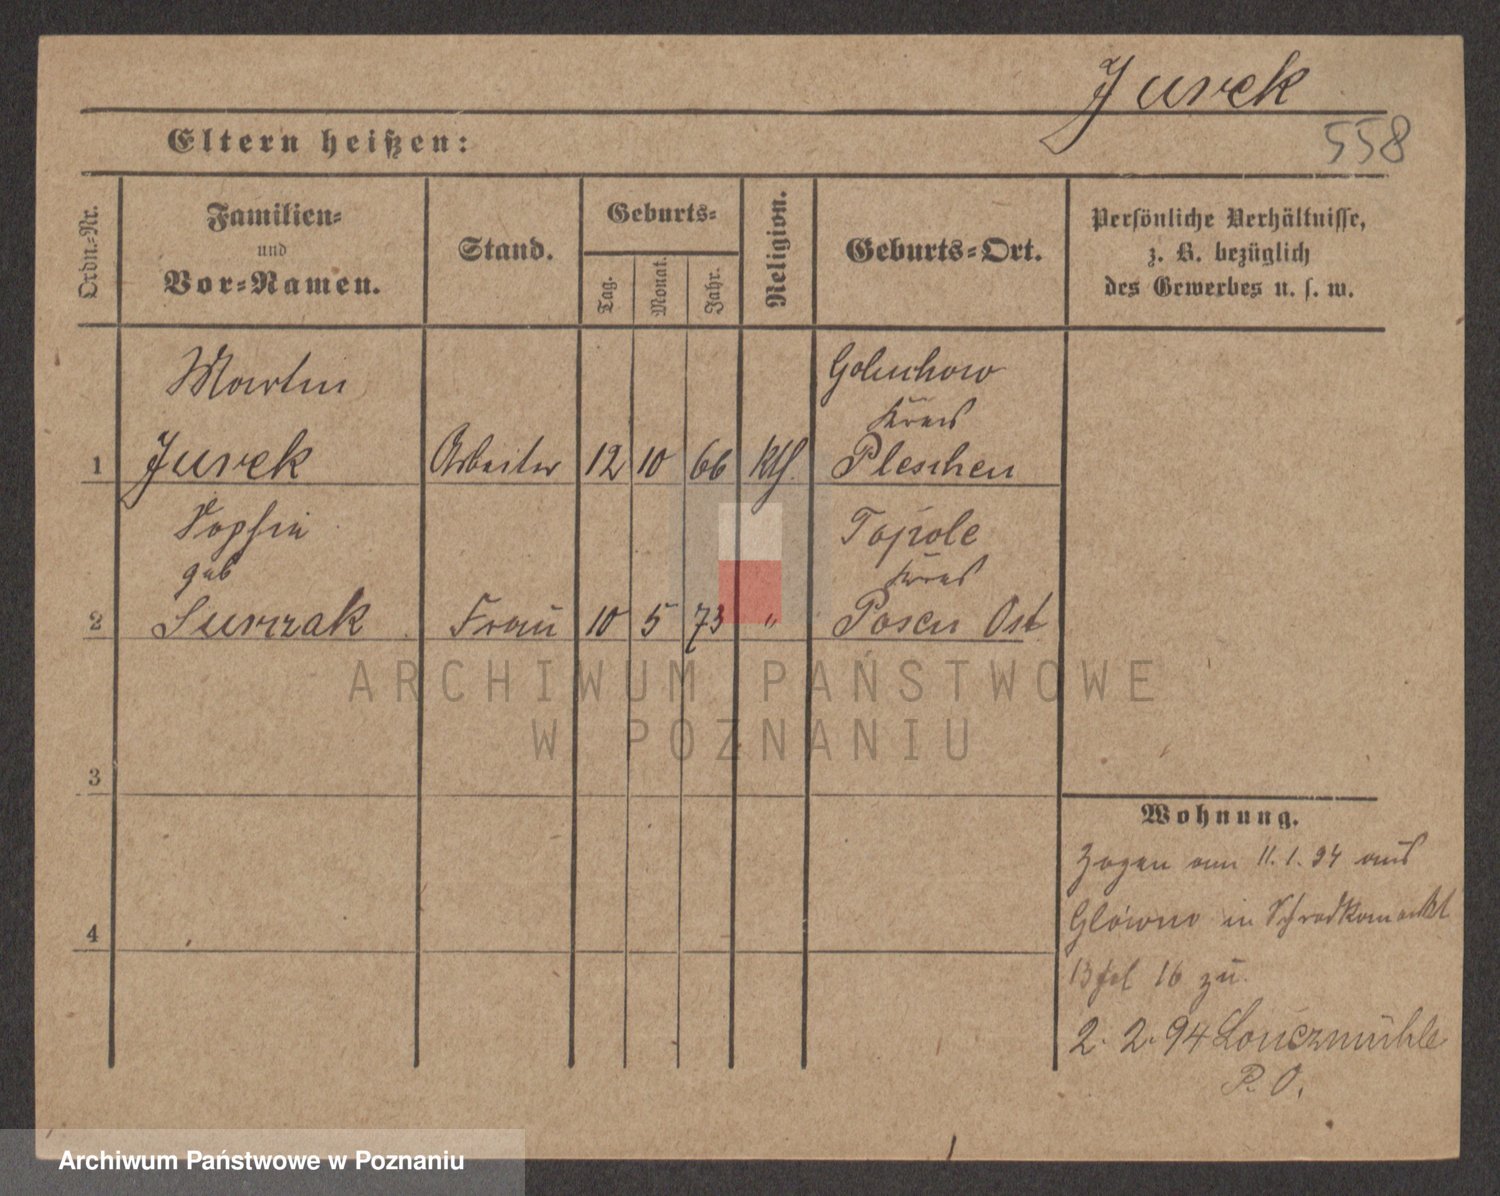 Jurek
558
Eltern heißen:
Ordn.-Nr.
Familien-
und
Vor-Namen.
Stand.
Geburts-
Tag.
Monat.
Jahr.
Religion.
Geburts-Ort.
Persönliche Verhältnisse,
z. B. bezüglich
des Gewerbes u. s. w.
Martin
Goluchow
Kreis
1 Jurek Arbeiter 12 10 66 Kth. Pleschen
Sophia
Topole
geb
Kreis
2 Frau 10 5 73 " Posen Ost
ARCHIWUM PAŃSTWOWE
W POZNANIU
3
4
Wohnung.
Zogen am 11.1.94 aus
Glówno in Schrodkamarkt
13 16 zu.
2. 2. 94 Louczmühle
P. O.
Archiwum Państwowe w Poznaniu